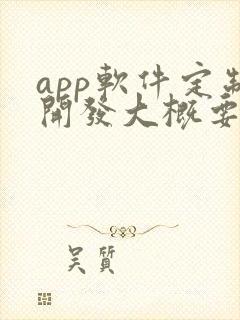 app軟件定制
開發大概要
吴質